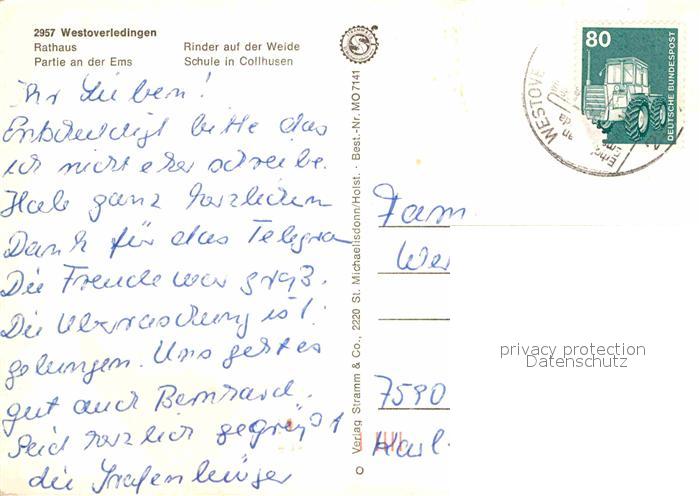 2957 Westoverledingen
Rathaus Rinder auf der Weide
Partie an der Ems Schule in Collhusen
Ihr Lieben!
Entschuldigt bitte das
ich nicht eher schreibe.
Hab ganz herzlichen
Dank für das Telegra
Die Freude war groß.
Die Überraschung ist
gelungen. Uns geht es
gut auch Bernhard.
Seid herzlich gegrüßt
die
Verlag Stramm & Co., 2220 St. Michaelisdonn/Holst. - Best.-Nr. MO 7141
80
DEUTSCHE BUNDESPOST
WESTOVE
an da
Fam
Wer
7590
privacy protection
Datenschutz